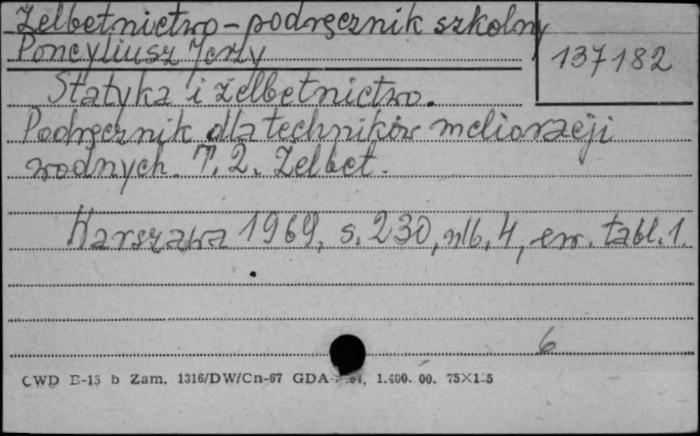 Żelbetnictwo - podręcznik szkolny
Poncyliusz Jerzy
137182
Statyka i żelbetnictwo.
Podręcznik dla techników melioracji
wodnych. T. 2. Żelbet.
Warszawa 1969, s. 230, nlb. 4, err. tabl. 1.
6
CWD E-15 b Zam. 1316/DW/Cn-67 GDA